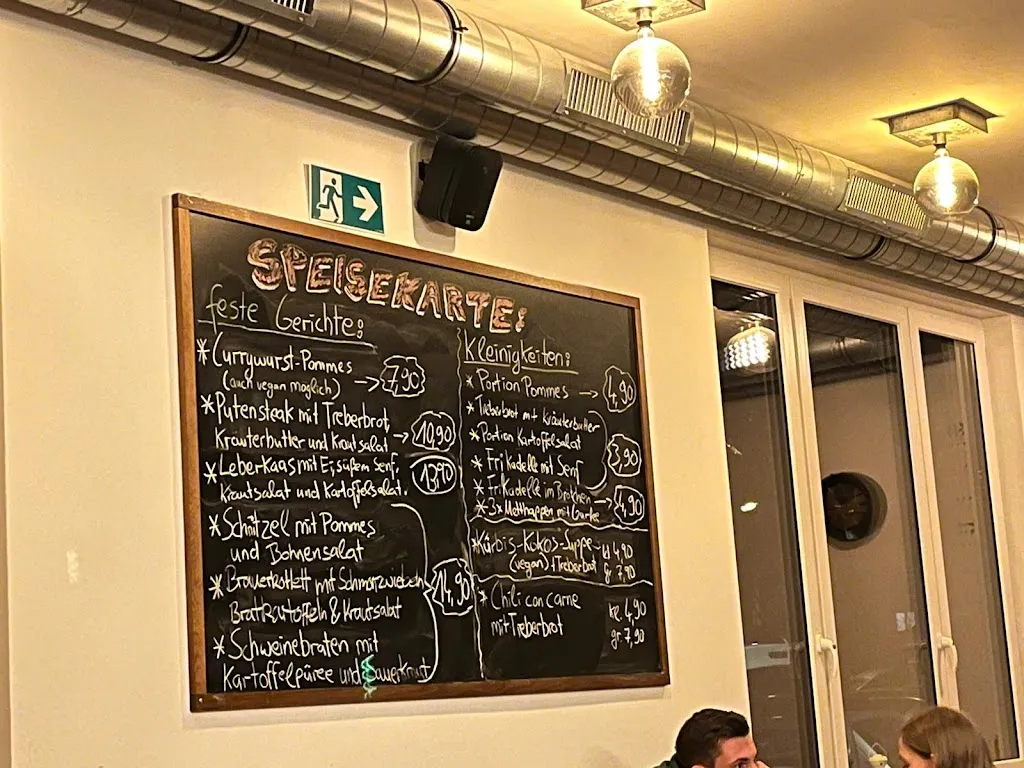 SPEISEKARTE:
feste Gerichte:
* Currywurst-Pommes
(auch vegan möglich) → 7,90
* Putensteak mit Treberbrot
Kräuterbutter und Krautsalat → 10,90
* Leberkaas mit Ei, süßem Senf,
Krautsalat und Kartoffelsalat. 13,90
* Schnitzel mit Pommes
und Bohnensalat
* Brauerkotlett mit Schmorzwiebeln
Bratkartoffeln & Krautsalat
14,90
* Schweinebraten mit
Kartoffelpüree und Sauerkraut
Kleinigkeiten:
* Portion Pommes → 4,90
* Treberbrot mit Kräuterbutter
* Portion Kartoffelsalat
* Frikadelle mit Senf
3,90
* Frikadelle im Brötchen
* 3x Metthappen mit Gurke
4,90
* Kürbis-Kokos-Suppe kl 4,90
(vegan) + Treberbrot gr 7,90
* Chili con carne kl. 4,90
mit Treberbrot gr. 7,90